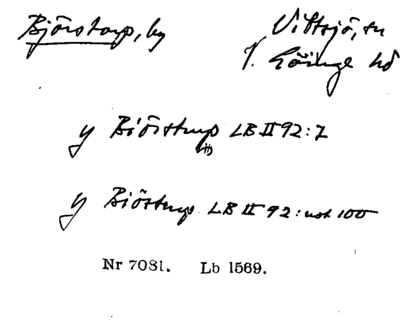 Björstorp, by
Vittsjö, sn
V. Göinge hd
y Biörstrup LB II 92:7
y Biörstrup LB II 92: not 100
Nr 7081. Lb 1569.